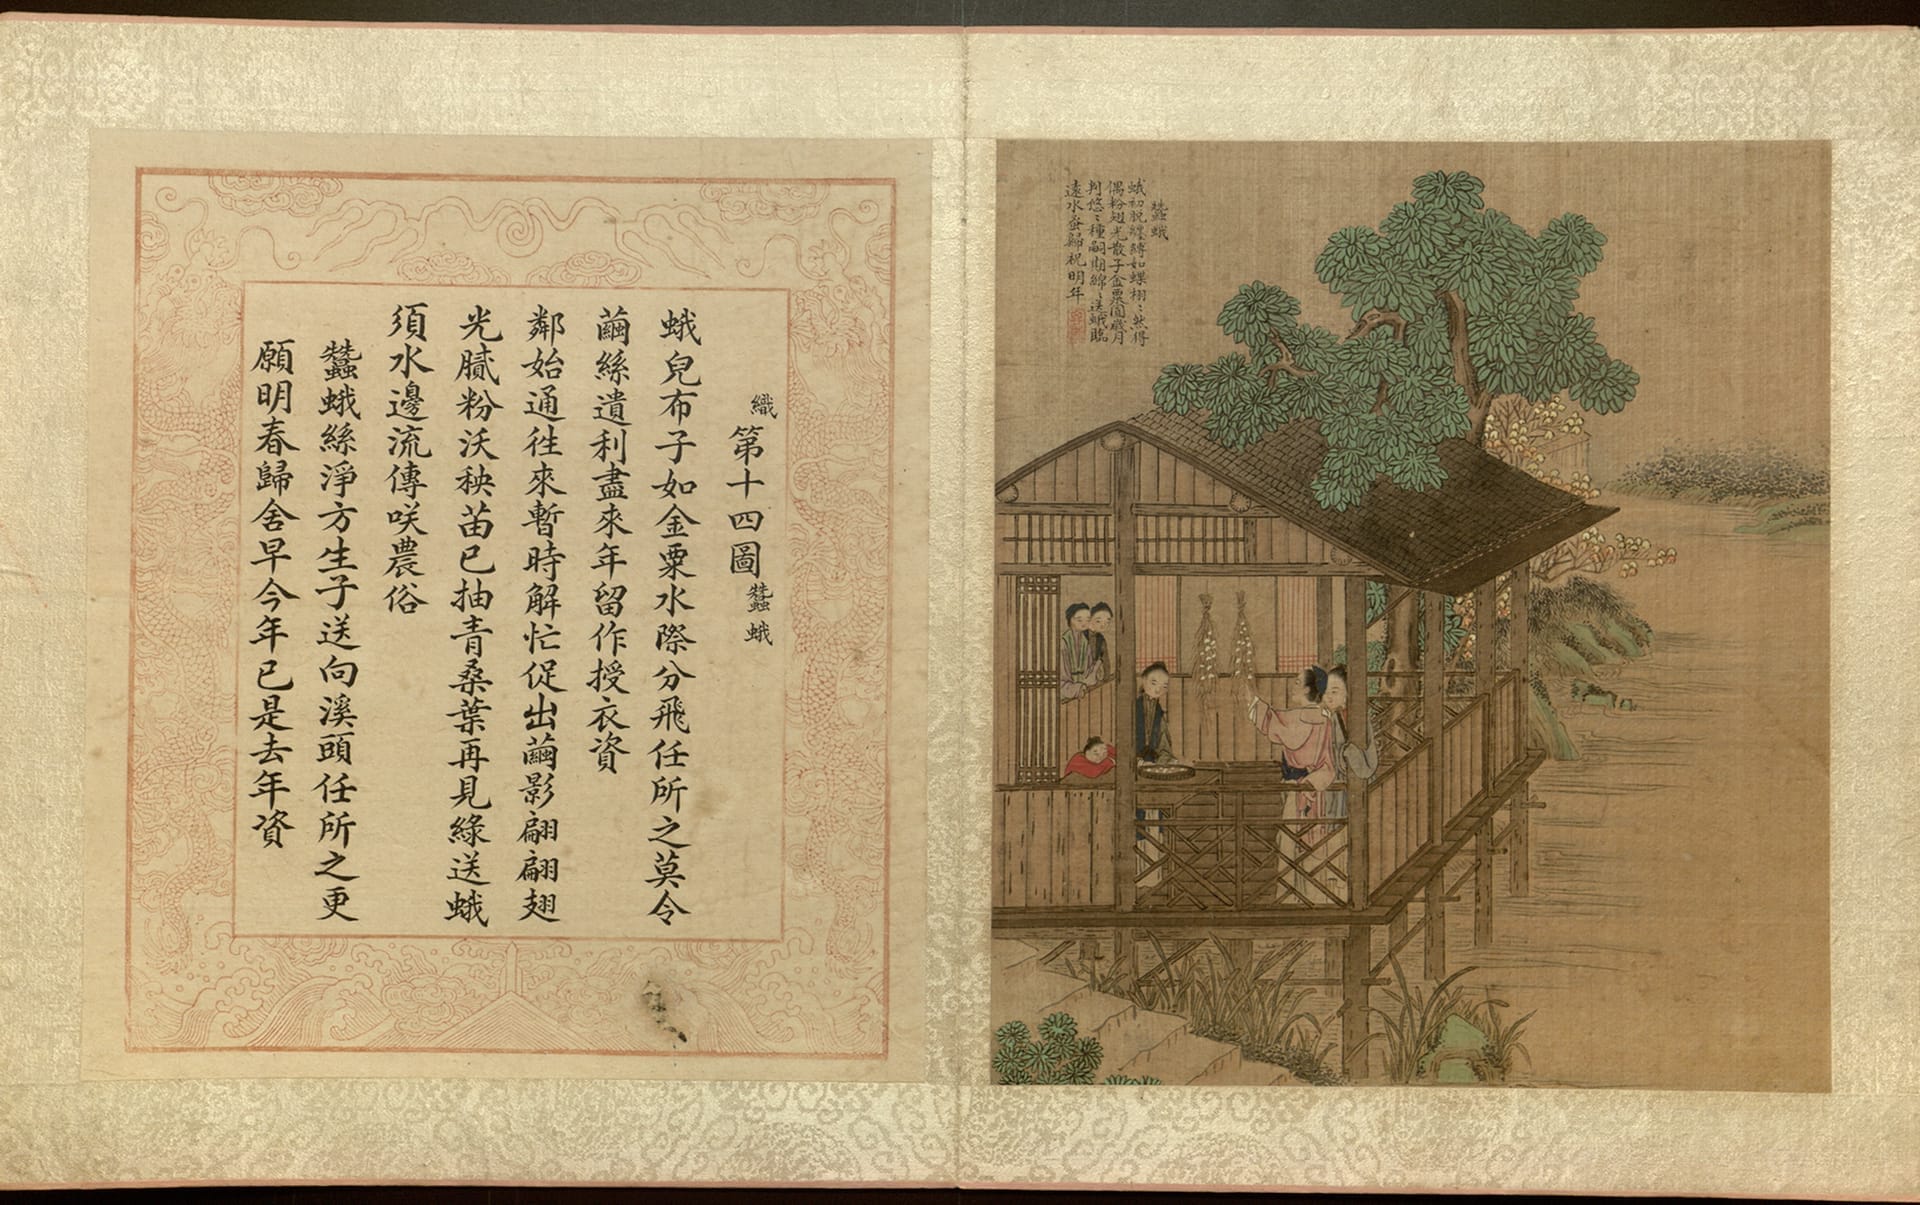 蠶蛾
蛾初脫纏縛如蝶栩〻然得
偶粉翅光散子金粟圓歲月
判悠〻種嗣期綿〻送蛾臨
遠水蚤歸祝明年
織第十四圖蠶蛾
蛾兒布子如金粟水際分飛任所之莫令
繭絲遺利盡來年留作授衣資
鄰始通徃來暫時解忙促出繭影翩翩翅
光膩粉沃秧苗已抽青桑葉再見綠送蛾
須水邊流傳咲農俗
蠶蛾絲淨方生子送向溪頭任所之更
願明春歸舍早今年已是去年資